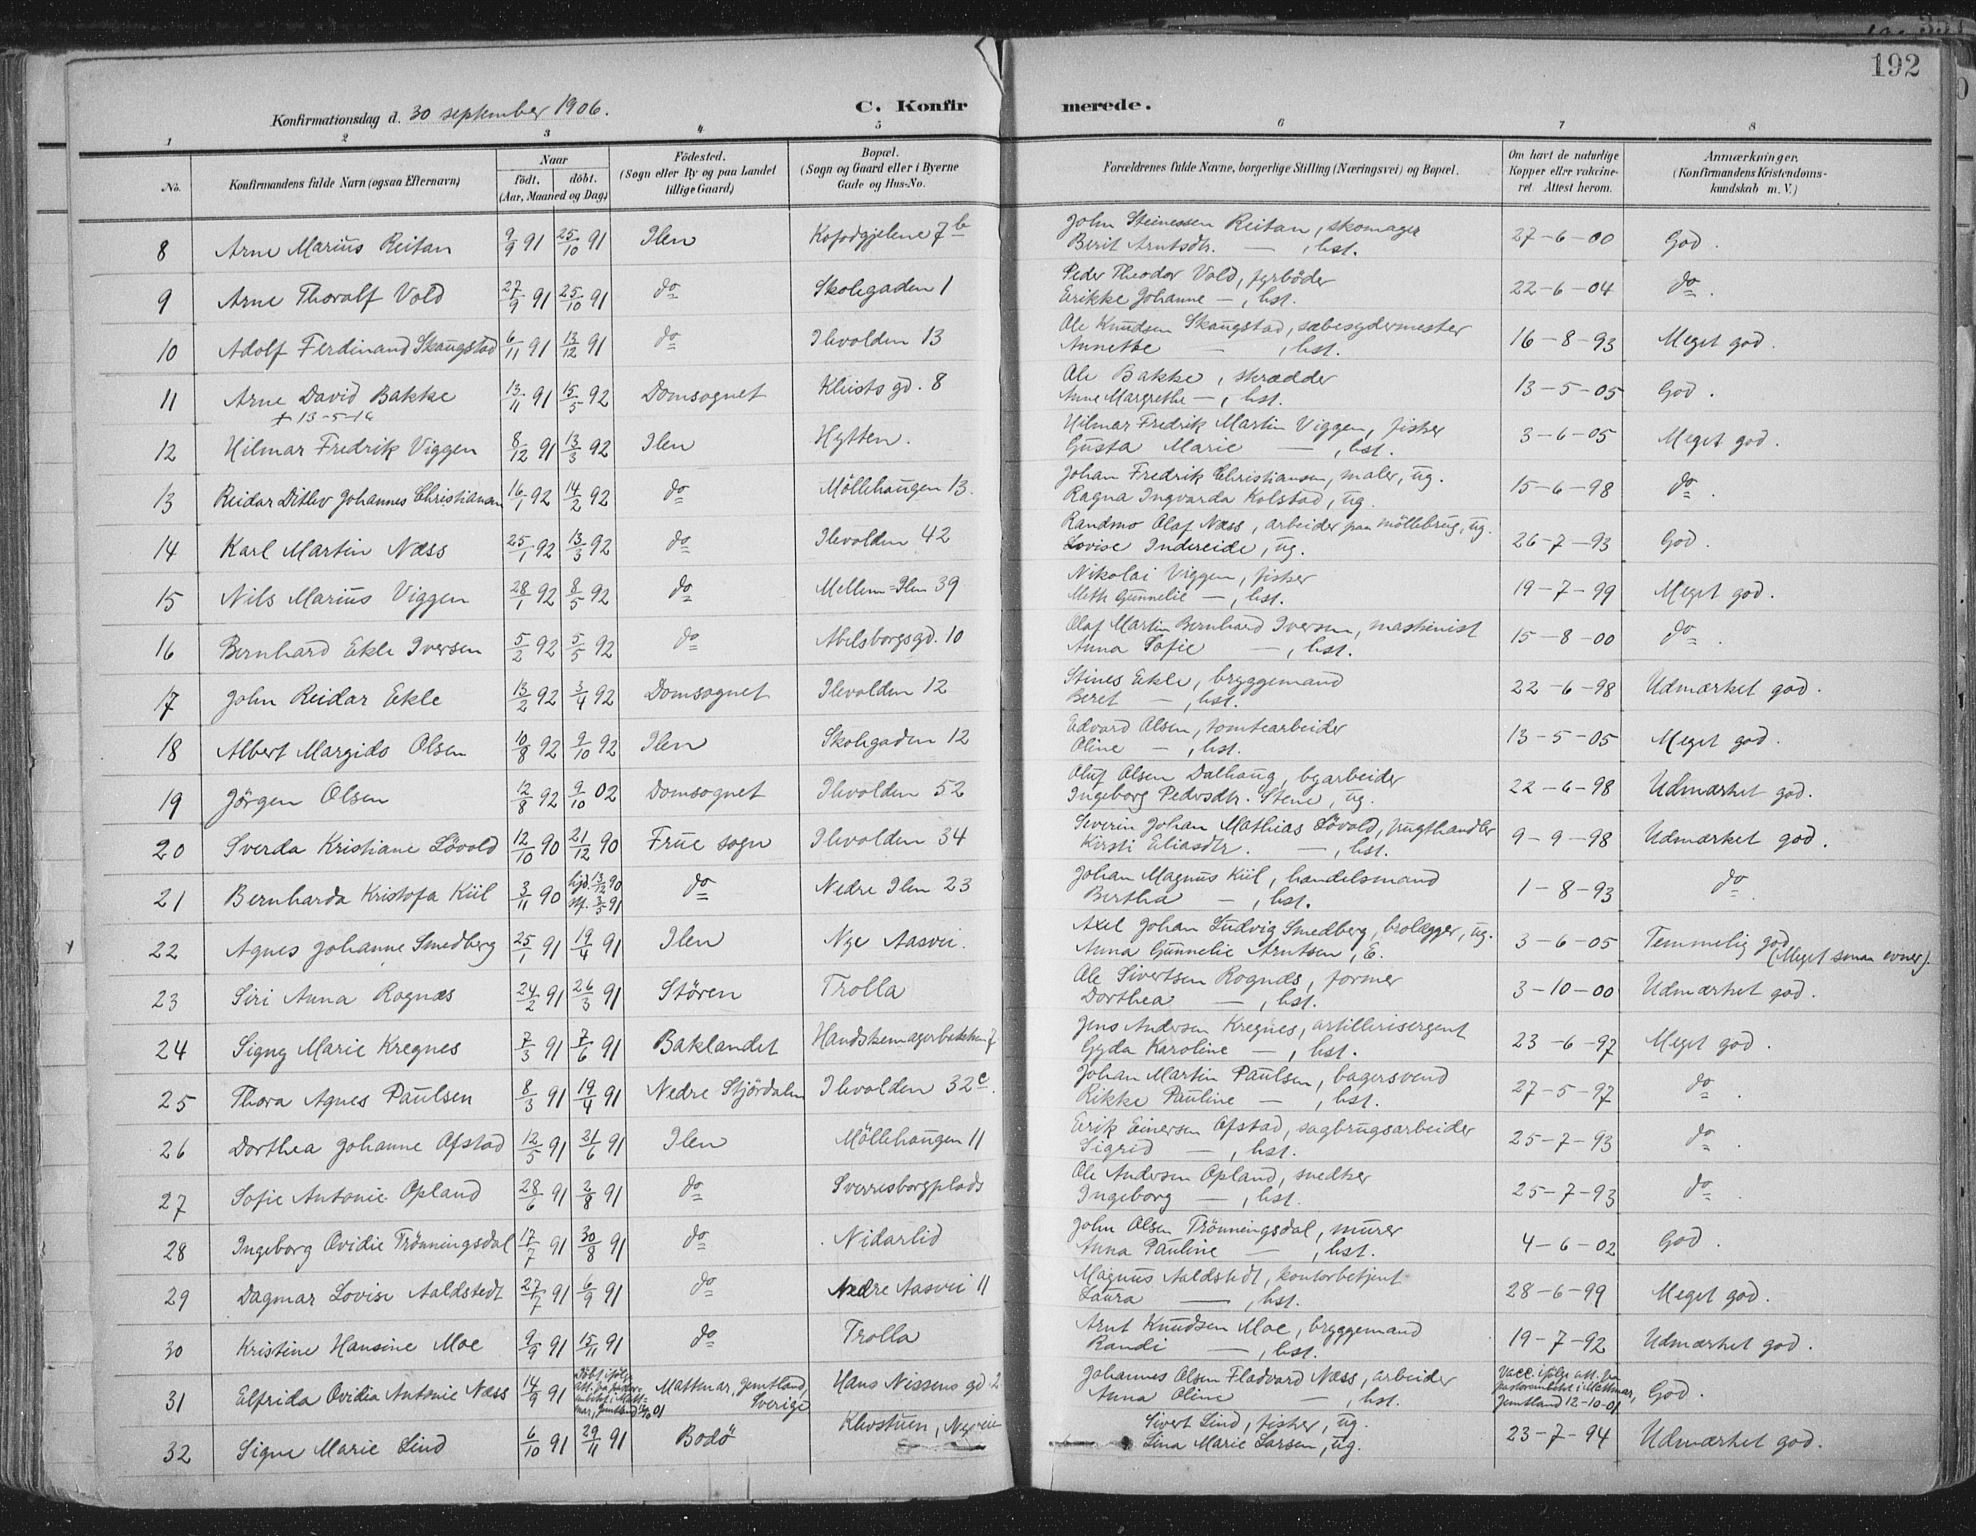 192
Konfirmationsdag d. 30 september 1906.
C. Konfirmerede.
1 2 3 4 5 6 7 8
No.
Konfirmandens fulde Navn (ogsaa Efternavn)
Naar
födt. döbt.
(Aar, Maaned og Dag)
Födested.
(Sogn eller By og paa Landet
tillige Gaard)
Bopæl.
(Sogn og Gaard eller i Byerne
Gade og Hus-No.
Forældrenes fulde Navne, borgerlige Stilling (Næringsvei) og Bopæl.
Om havt de naturlige
Kopper eller vakcine-
ret. Attest herom.
Anmærkninger.
(Konfirmandens Kristendoms-
kundskab m. V.)
8 Arne Marius Reitan 9/9 91 25/10 91 Ilen Kofodgjelene 7b John Steinessen Reitan, skomager 27-6-00 God.
Berit Arntsdtr. — , hst.
9 Arne Thoralf Vold 27/9 91 25/10 91 do Skolegaden 1 Peder Theodor Vold, fyrböder 22-6-04 do.
Eirikke Johanne —, hst.
10 Adolf Ferdinand Skaugstad 6/11 91 13/12 91 do Ilevolden 13 Ole Knudsen Skaugstad, sæbesydermester 16-8-93 Meget god.
Annette — , hst.
11 Arne David Bakke 13/11 91 15/5 92 Domsognet Kleists gd. 8 Ole Bakke, skrædder 13-5-05 God.
+ 13-5-14 Anne Margrethe —, hst.
12 Hilmar Fredrik Viggen 8/12 91 13/3 92 Ilen Hytten. Hilmar Fredrik Martin Viggen, fisker 3-6-05 Meget god.
Gusta Marie — , hst.
13 Reidar Ditlev Johannes Christiansen 16/1 92 14/2 92 do Möllehaugen 13. Johan Fredrik Christiansen, maler, ug. 15-6-98 do.
Ragna Ingvarda Kolstad, ug.
14 Karl Martin Næss 25/1 92 13/3 92 do Ilevolden 42 Randmo Olaf Næss, arbeider paa möllebrug, ug. 26-7-93 God.
Lovise Indereide, ug.
15 Nils Marius Viggen 28/1 92 8/5 92 do Mellem=Ilen 39 Nikolai Viggen, fisker 19-7-99 Meget god.
Meth Gunnelie —, hst.
16 Bernhard Ekle Iversen 5/2 92 5/5 92 do Abelsborgsgd. 10 Olaf Martin Bernhard Iversen, maskinist 15-8-00 do.
Anna Sofie — , hst.
17 John Reidar Ekle 13/2 92 3/4 92 Domsognet Ilevolden 12 Stines Ekle, bryggemand 22-6-98 Udmærket god.
Beret — , hst.
18 Albert Margido Olsen 10/8 92 9/10 92 Ilen Skolegaden 12 Edvard Olsen, tomtearbeider 13-5-05 Meget god.
Oline — , hst.
19 Jörgen Olsen 12/8 92 9/10 02 Domsognet Ilevolden 52 Oluf Olsen Dalhaug, byarbeider 22-6-98 Udmærket god.
Ingeborg Pedersdtr. Stene, ug.
20 Sverda Kristiane Lövold 12/10 90 21/12 90 Frue sogn Ilevolden 34 Severin Johan Mathias Lövold, frugthandler 9-9-98 Udmærket god.
Kirsti Eliasdtr. — , hst.
21 Bernharda Kristofa Kiil 3/11 90 hjd. 13/12 90 do Nedre Ilen 23 Johan Magnus Kiil, handelsmand 1-8-93 do.
stf. 3/5 91 Bertha — , hst.
22 Agnes Johanne Smedberg 25/1 91 19/4 91 Ilen Nye Aasvei. Axel Johan Ludvig Smedberg, brolægger, ug. 3-6-05 Temmelig god
Anna Gunnelie Arntsen, E. (Meget smaa evner).
23 Siri Anna Rognæs 24/2 91 26/3 91 Stören Trolla Ole Sivertsen Rognæs, former 3-10-00 Udmærket god.
Dorthea — , hst.
24 Signy Marie Kregnes 7/3 91 7/6 91 Baklandet Handskemagerbakken 7 Jens Andersen Kregnes, artillerisergent 23-6-97 Meget god.
Gyda Karoline — , hst.
25 Thora Agnes Paulsen 8/3 91 19/4 91 Nedre Stjördalen Ilevolden 32c. Johan Martin Paulsen, bagersvend 27-5-97 do.
Rikke Pauline — , hst.
26 Dorthea Johanne Ofstad 12/5 91 21/6 91 Ilen Möllehaugen 11 Eerik Einersen Ofstad, sagbrugsarbeider 25-7-93 do.
Sigrid — , hst.
27 Sofie Antonie Opland 28/6 91 2/8 91 do Sverresborgplads Ole Andersen Opland, snedker 25-7-93 do.
Ingeborg — , hst.
28 Ingeborg Ovidie Trönningsdal 17/7 91 30/8 91 do Nidarlid John Olsen Trönningsdal, murer 4-6-02 God.
Anna Pauline — , hst.
29 Dagmar Lovise Aaldstedt 27/7 91 6/9 91 do Nedre Aasvei 11 Magnus Aaldstedt, kontorbetjent 28-6-99 Meget god.
Laura — , hst.
30 Kristine Hansine Moe 9/9 91 15/11 91 do Trolla Arnt Knudsen Moe, bryggemand 19-7-92 Udmærket god.
Randi — , hst.
31 Elfrida Ovidia Antonie Næss 14/9 91 Döbt ifölge att. fra pastor-embetet i Matt-mar, Jemtland 12/10 01 Mattmar, Jemtland, Sverige Hans Nissens gd. 2 Johannes Olsen Fladvard Næss, arbeider Vacc. ifölge att. fra pastorembetet i Mattmar, Jemtland 12-10-01 God.
Anna Oline — , hst.
32 Signe Marie Lind 6/10 91 29/11 91 Bodö Klevstuen, Nyveie Sivert Lind, fisker, ug. 23-7-94 Udmærket god.
Lina Marie Larsen, ug.